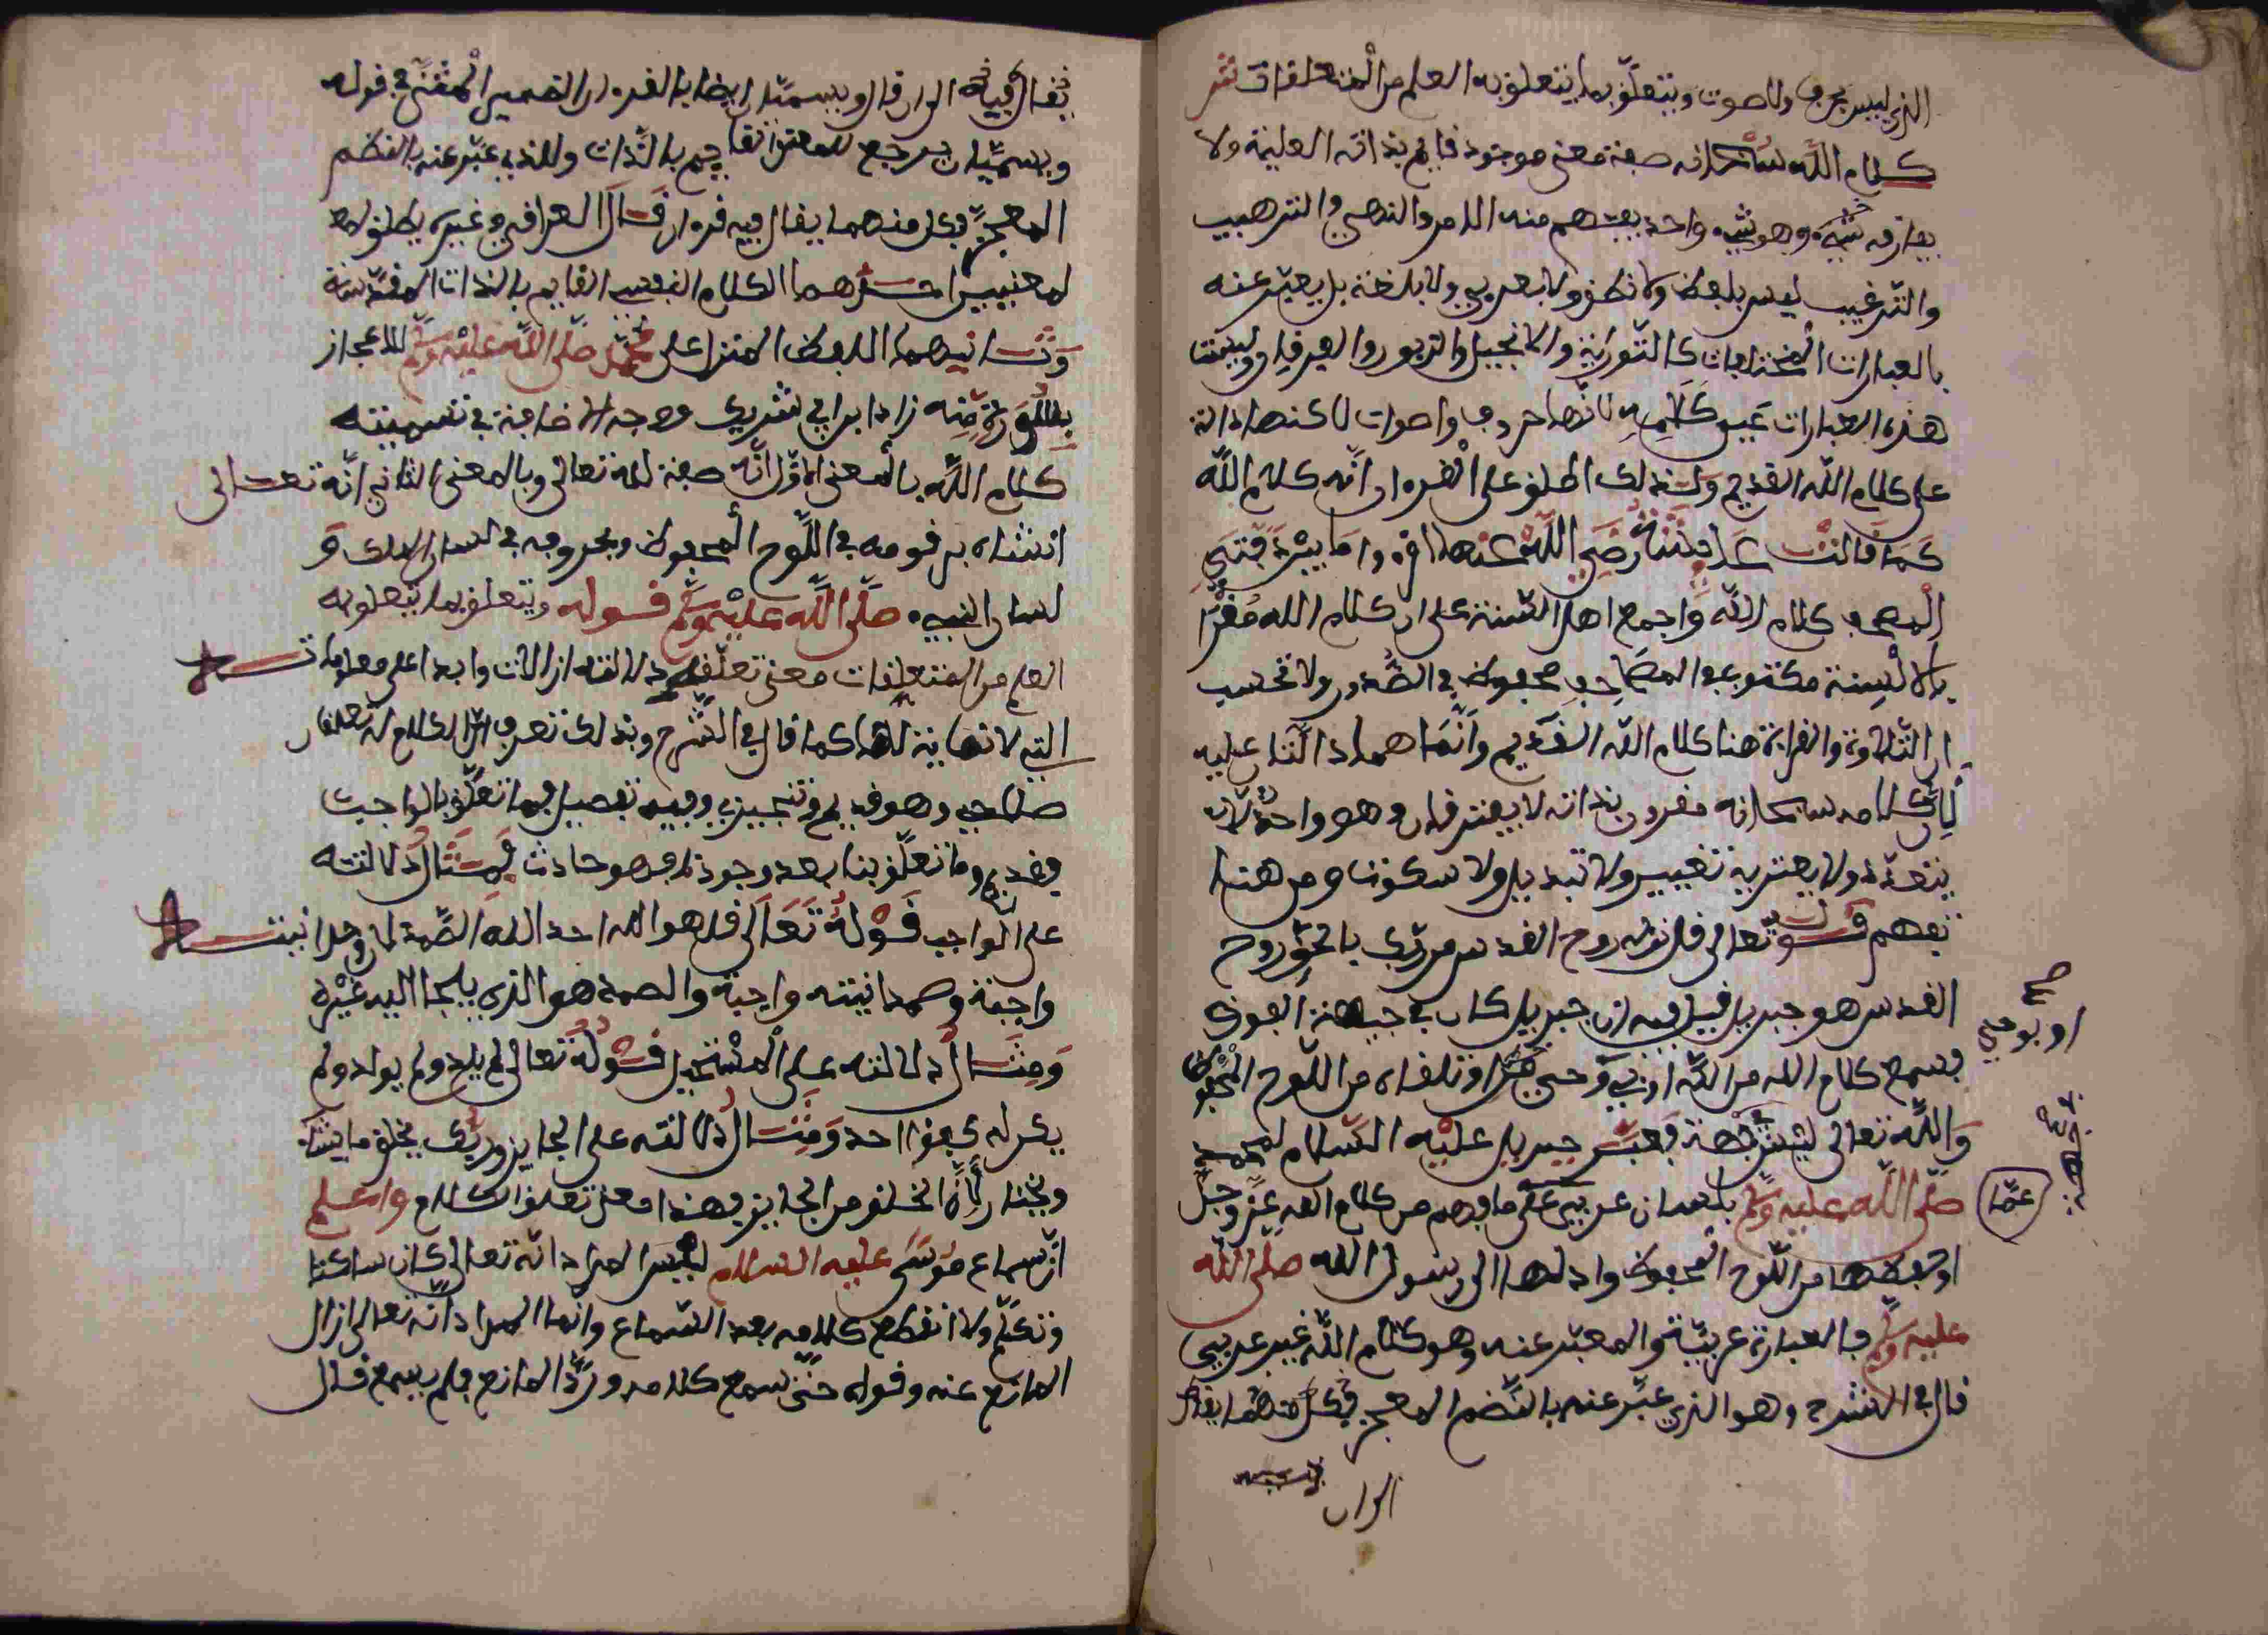 الذي ليس بحرف ولا صوت ويتعلق بما يتعلق به العلم من المتعلقات ش
كلام الله سبحانه صفة معنى موجود قايم بذاته العلية ولا
يفارقه شيء وهو شيء واحد يفهم منه الامر والنهي والترهيب
والترغيب ليس بلفظ ولا نطق ولا بعربي ولا بلغة بل يعبر عنه
بالعبارات المختلفات كالتورية والانجيل والزبور والفرقان وليست
هذه العبارات عين كلامه لانها حروف واصوات لاكنها دالة
على كلام الله القديم ولذلك اطلق على القرءان انه كلام الله
كما قالت عايشة رضي الله عنها اقرءوا ما بين دفتي
المصحف كلام الله واجمع اهل السنة على ان كلام الله مقرا
بالالسنة مكتوب في المصاحف محفوظ في الصدور ولا تحسب
ان التلاوة والقراءة هنا كلام الله القديم وانما هما دالتا عليه
لان كلامه سبحانه مقرون بذاته لا يفترقان وهو واحد لا
يتعدد ولا يعتريه تغيير ولا تبديل ولا سكوت ومن هنا
تفهم قوله تعالى قل نزله روح القدس من ربك بالحق روح
القدس هو جبريل قيل فيه ان جبريل كان في جهة الفوق
فسمع كلام الله من الله او بوحي او تلقاه من اللوح المحفوظ
والله تعالى ليس في جهة فعبر جبريل عليه السلام لمحمد
صلى الله عليه وسلم بلسان عربي على ما فهم من كلام الله عز وجل
او حفظها من اللوح المحفوظ واداها الى رسول الله صلى الله
عليه وسلم فالعبارة عربية والمعبر عنه وهو كلام الله غير عربي
قال في الشرح وهو الذي عبر عنه بالنظم المعجز فكل منهما يقال
صح
او بوحي
بجهة
عما
الوان
يقال فيه الوان قال ويسميان ايضا بالقرءان الضمير المثنى في قوله
ويسميان يرجع للمعنى القايم بالذات وللذي عبر عنه بالنظم
المعجز فكل منهما يقال فيه قرءان قال العراقي وغيره يطلق
لمعنيين احدهما الكلام النفسي القايم بالذات المقدسة
وثانيهما اللفظ المنزل على محمد صلى الله عليه وسلم للاعجاز
بسورة منه زاد ابن ابي شريف ووجه الاضافة في تسميته
كلام الله بالمعنى الاول انه صفة لله تعالى وبالمعنى الثاني انه تعالى
انشاه برقومه في اللوح المحفوظ وبحروفه في لسان الملك و
لسان النبيء صلى الله عليه وسلم قوله ويتعلق بما يتعلق به
العلم من المتعلقات معنى تعلقه دلالته ازلا وابدا على معلوماته
التي لا نهاية لها كما قال في الشرح وبذلك تعرف ان الكلام له تعلقان
صلاحي وهو قديم وتنجيزي وفيه تفصيل فما تعلق بالواجب
فقديم وما تعلق بنا بعد وجودنا فهو حادث فمثال دلالته
على الواجب قوله تعالى قل هو الله احد الله الصمد لان وحدانيته
واجبة وصمدانيته واجبة والصمد هو الذي يلجا اليه غيره
ومثال دلالته على المستحيل قوله تعالى لم يلد ولم يولد ولم
يكن له كفؤا احد ومثال دلالته على الجايز وربك يخلق ما يشاء
ويختار لان الخلق من الجايز فهذا معنى تعلق الكلام واعلم
ان سماع موسى عليه السلام ليس المراد انه تعالى كان ساكتا
وتكلم ولا انقطع كلامه بعد السماع وانما المراد انه تعالى ازال
المانع عنه وقواه حتى سمع كلامه ورد المانع فلم يسمع قال